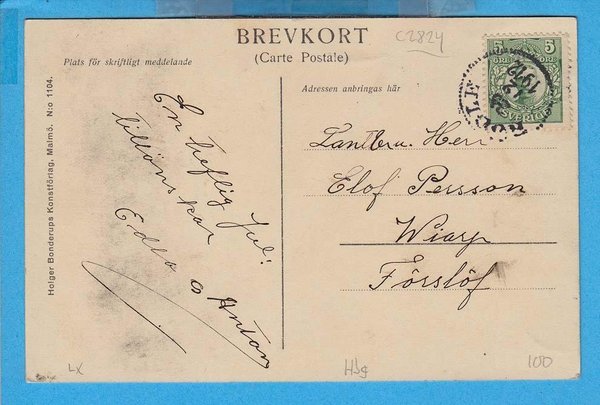 BREVKORT
(Carte Postale)
C2824
Plats för skriftligt meddelande
Adressen anbringas här
5 5
ÖRE ÖRE
SVERIGE
1912
En treflig Jul!
tillönskar
Edla o Anton
Lantbru. Herr
Elof Persson
Wiarp
Förslöf
Holger Bonderups Konstförlag, Malmö. N:o 1104.
LX
Hbg
100